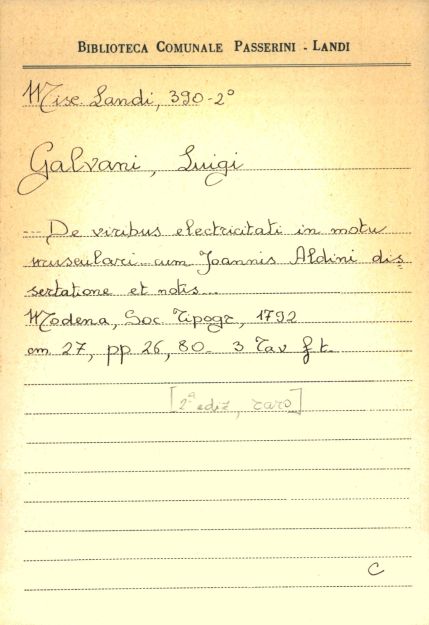 BIBLIOTECA COMUNALE PASSERINI - LANDI
Misc. Landi, 390-2°
Galvani, Luigi
--- De viribus electricitati in motu
musculari... cum Joannis Aldini dis=
sertatione et notis...
Modena, Soc. Tipogr, 1792
cm 27, pp. 26, 80. 3 Tav f.t.
[2ª ediz, raro]
C